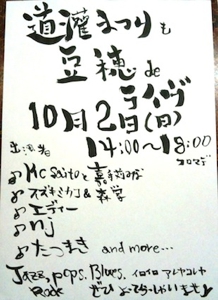 道灌まつりも
豆穂 de
ライヴ
10月2日(日)
14:00〜18:00
出演者 コロマデ
Mc Saitoと
スズキミカ & 森学
エディー
nj
たつまき and more...
Jazz, pops, Blues, イロイロ アレヤコレヤ
Rock ぜひ いらっしゃいませ